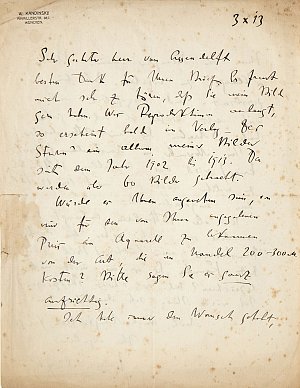 W. KANDINSKY
AINMILLERSTR. 36, I
MÜNCHEN.
3 X 13
Sehr geehrter Herr van Assendelft
besten Dank für Ihren Brief. Es freut
mich sehr zu hören, daß Sie mein Bild
gern haben. Wer Reproduktionen verlangt,
so erscheint bald im Verlag „Der
Sturm" ein Album meiner Bilder
seit dem Jahr 1902 bis 1913. Da
werden über 60 Bilder gebracht.
Würde es Ihnen angenehm sein, von
mir für den von Ihnen angegebenen
Preis ein Aquarell zu bekommen
von der Art, die im Handel 200-300 M
kosten? Bitte sagen Sie es ganz
aufrichtig.
Ich habe immer den Wunsch gehabt,